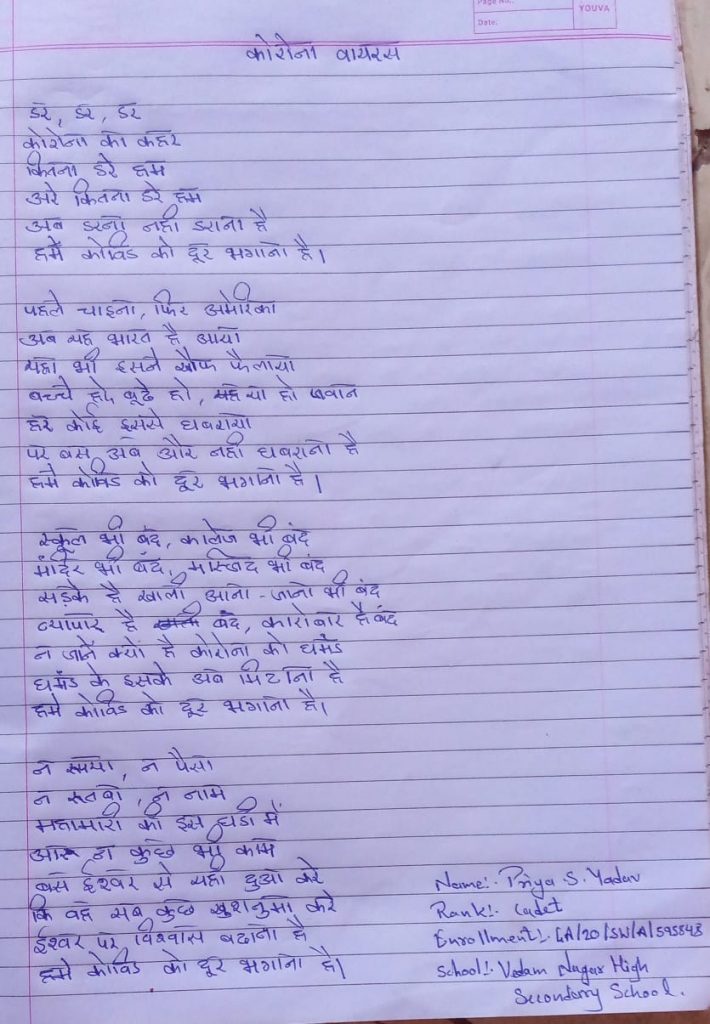 Page No.:
Date:
YOUVA
कोरोना वायरस
डर, डर, डर
कोरोना का कहर
कितना डरे हम
अरे कितना डरे हम
अब डरना नहीं डराना है
हमें कोविड को दूर भगाना है।
पहले चाइना, फिर अमेरिका
अब यह भारत है आया
यहा भी इसने खौफ फैलाया
बच्चे हो, बूढे हो, या हो जवान
हर कोई इससे घबराया
पर बस अब और नहीं घबराना है
हमे कोविड को दूर भगाना है।
स्कूल भी बंद, कालेज भी बंद
मंदिर भी बंद, मस्जिद भी बंद
सड़के है खाली आना-जाना भी बंद
व्यापार है बंद, कारोबार है बंद
न जाने क्यों है कोरोना को घमंड
घमंड के इसके अब मिटाना है
हमे कोविड को दूर भगाना है।
न रुपया, न पैसा
न रुतबा, न नाम
महामारी की इस घडी में
आए ना कुछ भी काम
बस ईश्वर से यही दुआ करे
कि वह सब कुछ खुशनुमा करे
ईश्वर पर विश्वास बढाना है
हमे कोविड को दूर भगाना है।
Name:- Priya.S.Yadav
Rank:- Cadet
Enrollment:- GA/20/SW/A/595843
School:- Vedam Nagar High
Secondary School.